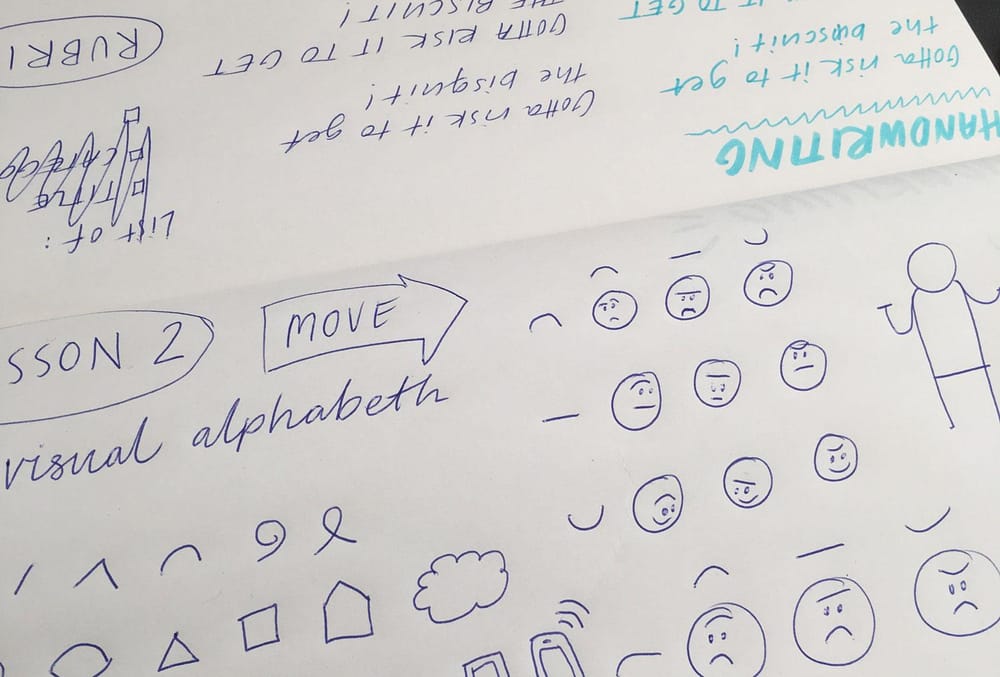 HANDWRITING
Gotta risk it to get
the bipscuit!
IT TO GET
Gotta risk it to get
the bisquit!
GOTTA RISK IT TO GET
THE BISCUIT!
RUBRI
List of:
SSON 2
MOVE
visual alphabeth